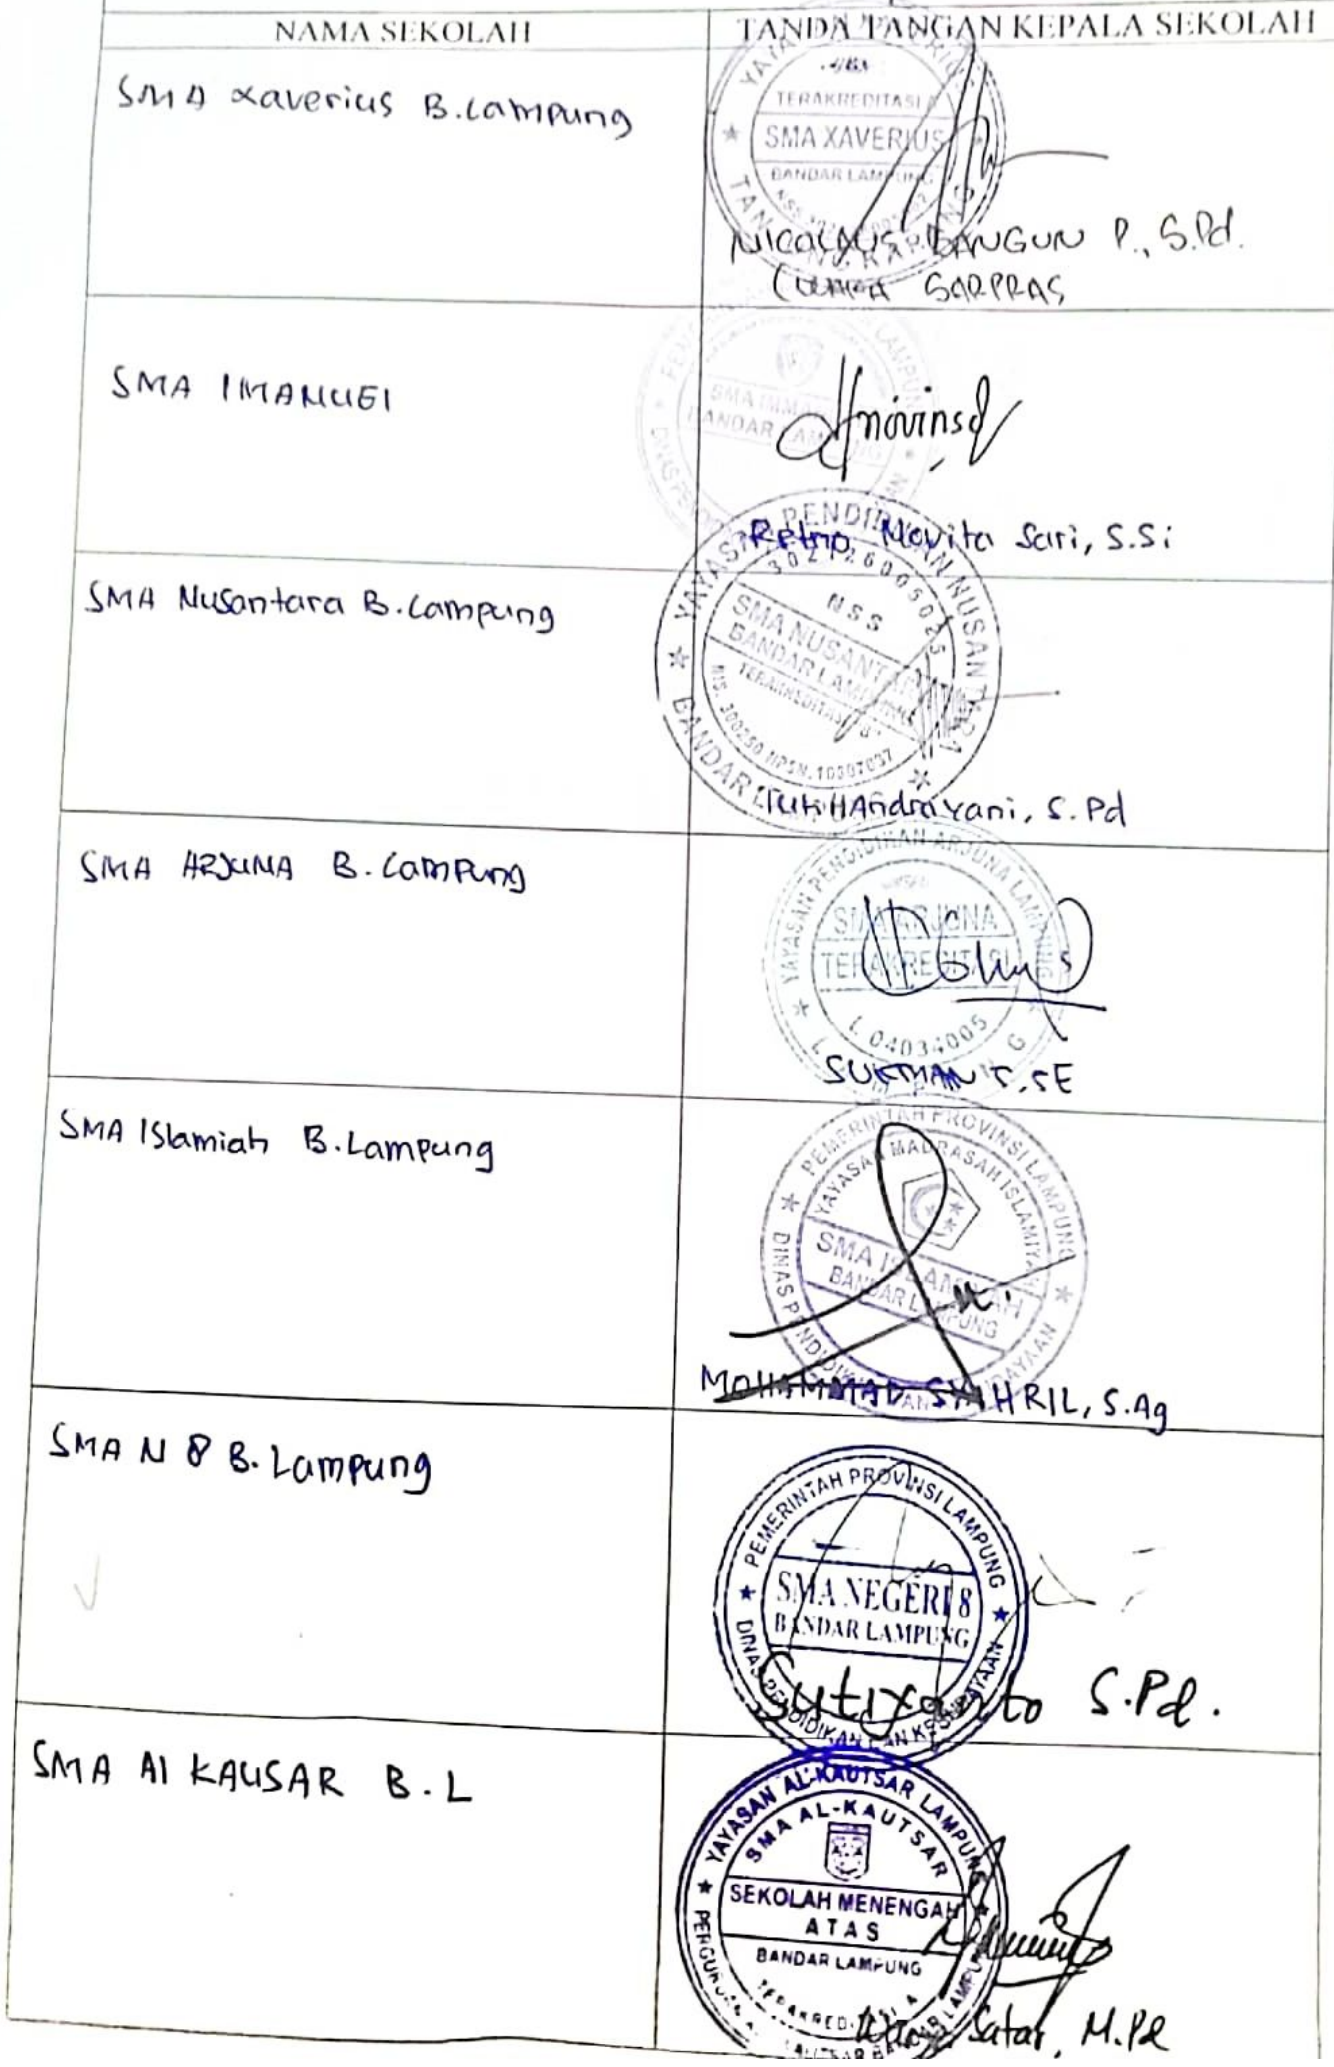 NAMA SEKOLAH
TANDA TANGAN KEPALA SEKOLAH
SMA Xaverius B.Lampung
TERAKREDITASI A
SMA XAVERIUS
BANDAR LAMPUNG
NICOLAUS BANGUN P., S.Pd.
SARPRAS
SMA IMANUEl
BANDAR LAMPUNG
Retno Novita Sari, S.Si
SMA Nusantara B.Lampung
YAYASAN PENDIDIKAN NUSANTARA
NSS
SMA NUSANTARA
BANDAR LAMPUNG
TERAKREDITASI "B"
NIS. 300250 NPSN. 10807037
BANDAR
Handrayani, S.Pd
SMA ARJUNA B.Lampung
YAYASAN PENDIDIKAN ARJUNA LAMPUNG
SMA ARJUNA
TERAKREDITASI
L 04034005
SUKTMAN S, SE
SMA Islamiah B.Lampung
PEMERINTAH PROVINSI LAMPUNG
YAYASAN MADRASAH ISLAMIYAH
SMA ISLAMIYAH
BANDAR LAMPUNG
DINAS PENDIDIKAN DAN KEBUDAYAAN
MOHAMMAD SYAHRIL, S.Ag
SMA N 8 B.Lampung
PEMERINTAH PROVINSI LAMPUNG
SMA NEGERI 8
BANDAR LAMPUNG
DINAS PENDIDIKAN DAN KEBUDAYAAN
Sutiyanto S.Pd.
SMA Al KAUSAR B.L
YAYASAN AL-KAUTSAR LAMPUNG
SMA AL-KAUTSAR
SEKOLAH MENENGAH
ATAS
BANDAR LAMPUNG
TERAKREDITASI A
Satar, M.Pd